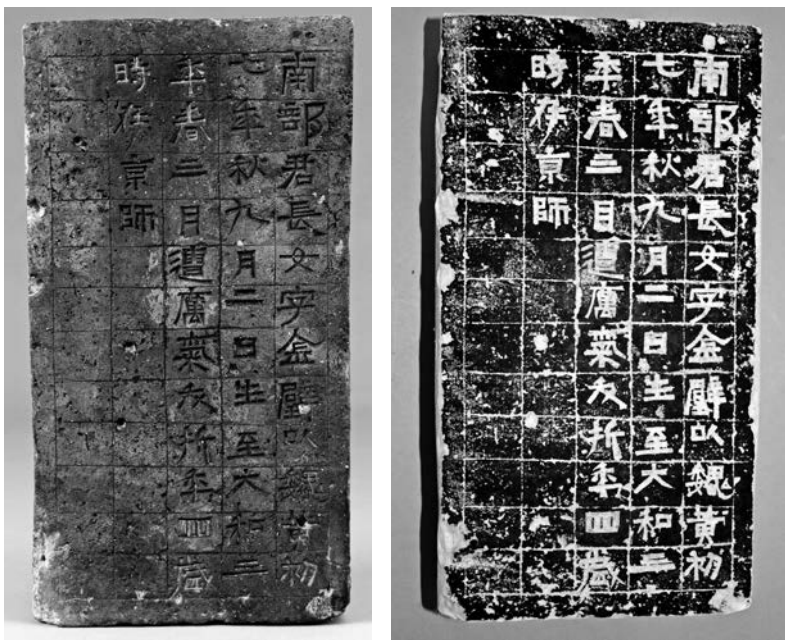 南部君長女字金璧以魏黃初
七年秋九月二日生至大和三
年春三月遭厲氣夭折年四歲
時在京師
南部君長女字金璧以魏黃初
七年秋九月二日生至大和三
年春三月遭厲氣夭折年四歲
時在京師